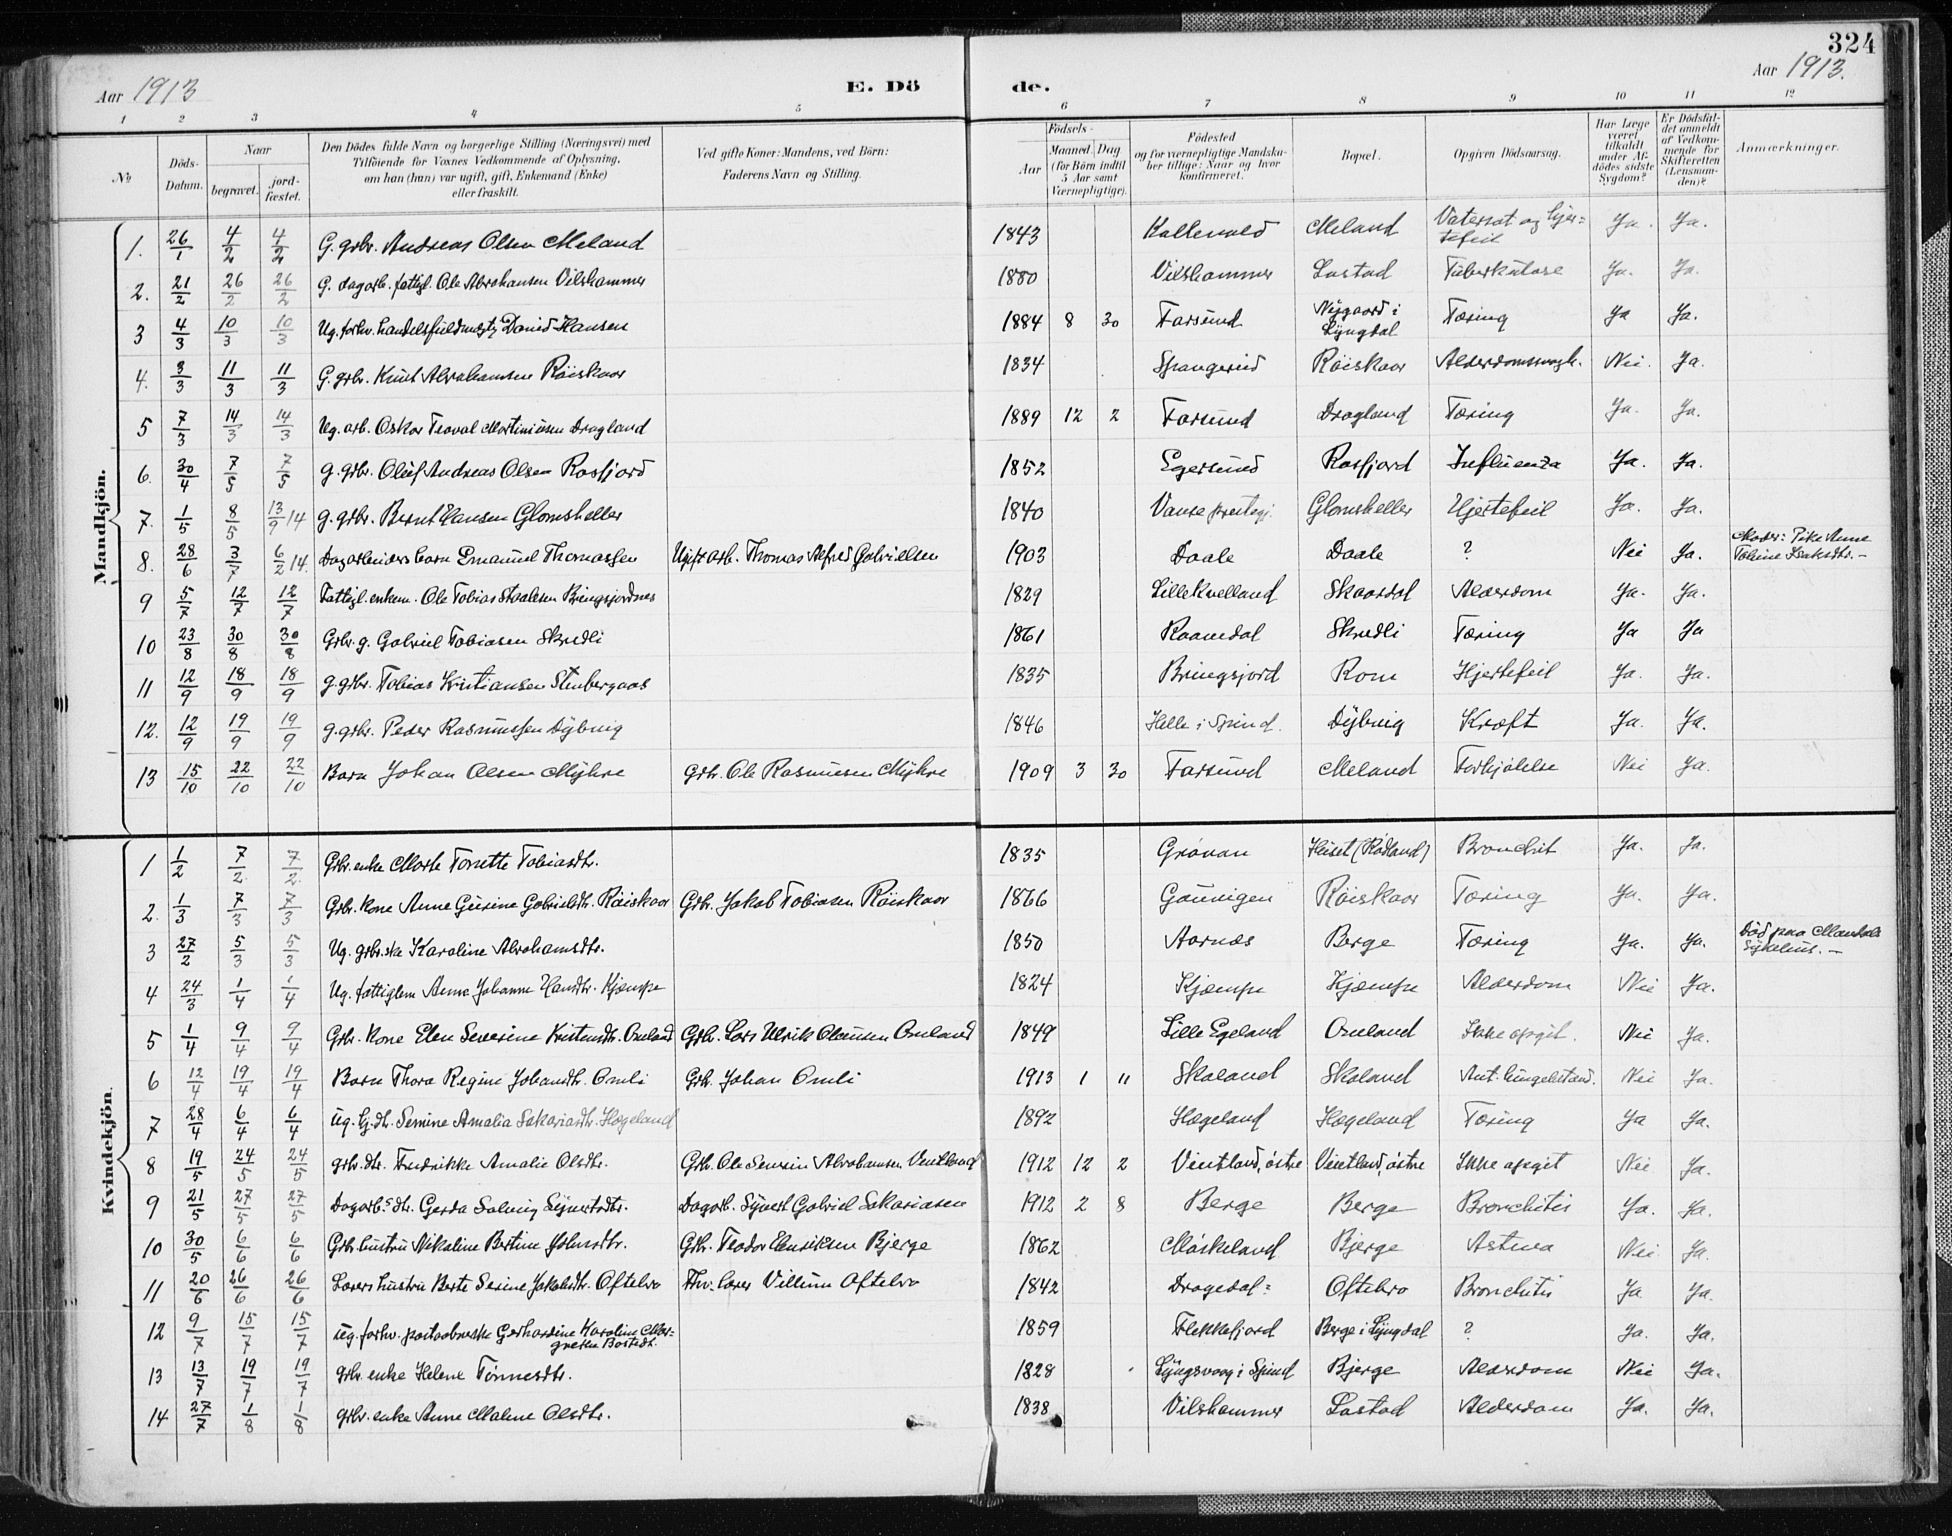 324
Aar 1913 E. Dö de. Aar 1913.
1 2 3 4 5 6 7 8 9 10 11 12
No
Döds-Datum.
Naar begravet. jord-fæstet.
Den Dödes fulde Navn og borgerlige Stilling (Næringsvei) med Tilföiende for Voxnes Vedkommende af Oplysning, om han (hun) var ugift, gift, Enkemand (Enke) eller fraskilt.
Ved gifte Koner: Mandens, ved Börn: Faderens Navn og Stilling.
Födsels-
Aar Maaned Dag (for Börn indtil 5 Aar samt Værnepligtige).
Födested og for værnepligtige Mandskaber tillige: Naar og hvor konfirmeret.
Bopæl.
Opgiven Dödsaarsag.
Har Læge været tilkaldt under Afdödes sidste Sygdom?
Er Dödsfaldet anmeldt af Vedkommende for Skifteretten (Lensmanden)?
Anmærkninger.
Mandkjön.
1. 26/1 4/2 4/2 G. grbr. Andreas Olsen Meland 1843 Kallevold Meland Vatersot og hjertefeil Ja. Ja.
2. 21/2 26/2 26/2 G. dagarb. fattigl. Ole Abrahamsen Vilshammer 1880 Vilshammer Lastad Tuberkulose Ja. Ja.
3 4/3 10/3 10/3 Ug. forhv. handelsfuldmægtg David Hansen 1884 8 30 Farsund Nygaard i Lyngdal Tæring Ja Ja.
4. 3/3 11/3 11/3 G. grbr. Knut Abrahamsen Röiskaar 1834 Spangerid Röiskaar Alderdomssvagh. Nei. Ja.
5 7/3 14/3 14/3 Ug. arb. Oskar Teoval Martiniusen Dragland 1889 12 2 Farsund Dragland Tæring Ja. Ja.
6. 30/4 7/5 7/5 g. grbr. Oluf Andreas Olsen Rosfjord 1852 Egersund Rosfjord Influenza Ja. Ja.
7. 1/5 8/5 13/9 14 g. grbr. Bernt Hansen Glomsheller 1840 Vanse prestegj. Glomsheller Hjertefeil Ja. Ja.
8. 28/6 3/7 6/2 14. Dagarbeiders barn Emanuel Thomassen Ugift arb. Thomas Alfred Gabrielsen 1903 Daale Daale ? Nei Ja. Moder: Pike Anne Tobine Isaksdtr. —
9 5/7 12/7 12/7 Fattigl. enkem. Ole Tobias Staalesen Bringsjordnes 1829 Lille Kvelland Skaardal Alderdom Ja. Ja.
10 23/8 30/8 30/8 Grbr. g. Gabriel Tobiasen Skredli 1861 Raamdal Skredli Tæring Ja Ja
11 12/9 18/9 18/9 g. grbr. Tobias Kristiansen Stubergaas 1835 Bringsjord Rom Hjertefeil Ja. Ja.
12. 12/9 19/9 19/9 g. grbr. Peder Rasmussen Dybvig 1846 Helle i Spind. Dybvig Kræft Ja. Ja.
13 15/10 22/10 22/10 Barn Johan Olsen Myhre Grbr. Ole Rasmusen Myhre 1909 3 30 Farsund Meland Forkjölelse Nei Ja.
Kvindekjön.
1 1/2 7/2 7/2 Grbr. enke Marte Tonette Tobiasdtr. 1835 Grövan Huset (Rödland) Bronchit Ja. Ja.
2. 1/3 7/3 7/3 Grbr. kone Anne Gurine Gabrielsdtr. Röiskaar Grbr. Jakob Tobiasen Röiskaar 1866 Gauvigen Röiskaar Tæring Ja. Ja.
3 27/2 5/3 5/3 Ug. grbr.ske Karoline Abrahamsdtr. 1850 Aarnes Berge Tæring Ja. Ja. Död paa Mandals Sykehus. —
4 24/3 1/4 1/4 Ug. fattiglem Anne Johanne Hansdtr. Kjæmpe 1824 Kjæmpe Kjæmpe Alderdom Nei Ja.
5 1/4 9/4 9/4 Grbr. kone Elen Severine Kristensdtr. Omland Grbr. Lars Ulrik Clausen Omland 1849 Lille Egeland Omland Ikke opgit. Nei Ja.
6 12/4 19/4 19/4 Barn Thora Regine Johansdtr. Omli Grbr. Johan Omli 1913 1 11 Skoland Skoland Ant. lungebetænd. Nei Ja.
7 28/4 6/4 6/4 Ug. Gj.dtr. Semine Amalia Sakariasdtr. Hægeland 1892 Hægeland Hægeland Tæring Ja Ja.
8 19/5 24/5 24/5 grbr. dtr. Fredrikke Amalie Olsdtr. Grbr. Ole Severin Abrahamsen Vintland 1912 12 2 Vintland, östre Vintland, östre Ikke opgit Nei Ja.
9 21/5 27/5 27/5 Dagarb.s dtr. Gerda Solveig Syvertsdtr. Dagarb. Syvert Gabriel Sakariasen 1912 2 8 Berge Berge Bronchitis Ja. Ja.
10 30/5 6/6 6/6 Grbr. hustru Nikoline Bertine Johnsdtr. Grbr. Teodor Henriksen Bjerge 1862 Möskeland Bjerge Astma Nei Ja.
11 20/6 26/6 26/6 Lærers hustru Berte Serine Jakobsdtr. Oftebro Fhv. lærer Villum Oftebro 1842 Dragedal Oftebro Bronchitis Ja Ja.
12 9/7 15/7 15/7 Ug. forhv. postaabnerske Gerhardine Karoline Margrethe Bostedt. 1859 Flekkefjord Berge i Lyngdal ? Ja. Ja.
13 13/7 19/7 19/7 grbr. enke Helene Tönnesdtr. 1828 Lyngsvaag i Spind Bjerge Alderdom Nei Ja.
14 27/7 1/8 1/8 grbr. enke Anne Malene Olsdtr. 1838 Vilshammer Lastad Alderdom Ja. Ja.